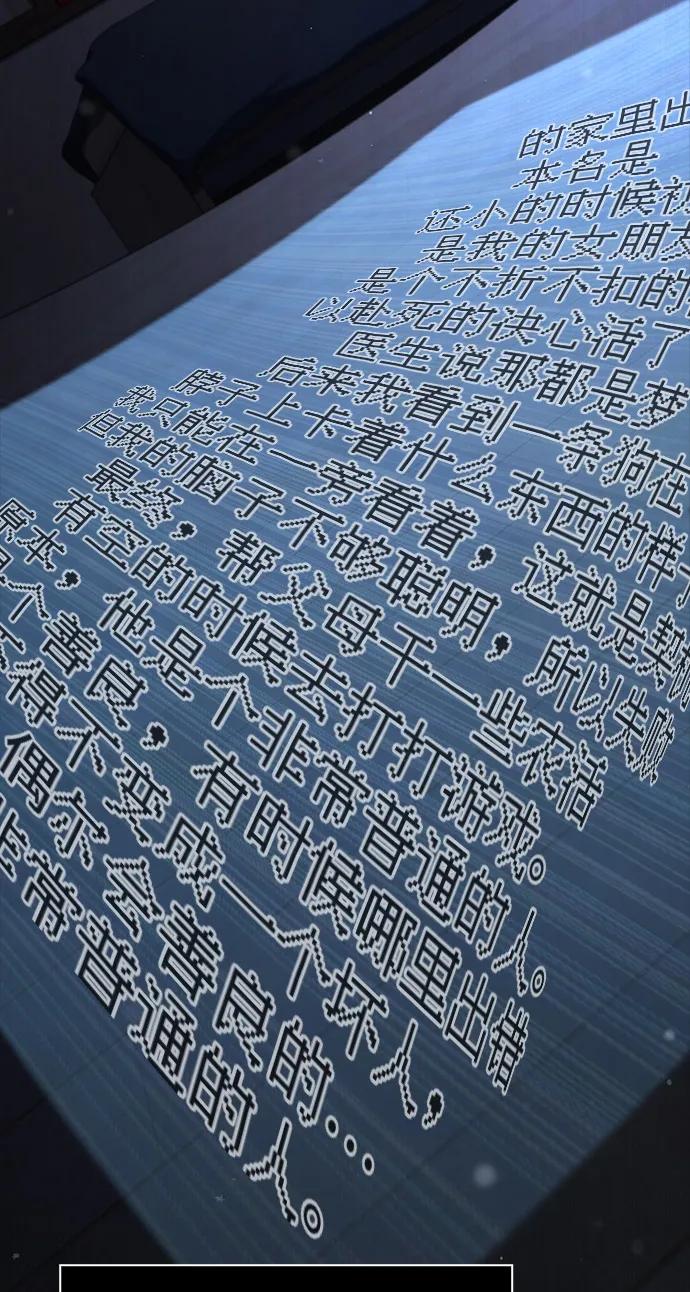 的家里出
本名是
还小的时候初
是我的女朋友
是个不折不扣的
以赴死的决心活了
医生说那都是梦
后来我看到一条狗在
脖子上卡着什么东西的样子
我只能在一旁看着，这就是契机
但我的脑子不够聪明，所以失败
最终，帮父母干一些农活
有空的时候去打打游戏。
原本，他是个非常普通的人。
个善良，有时候哪里出错
得不变成一个坏人，
偶尔会善良的…
非常普通的人。